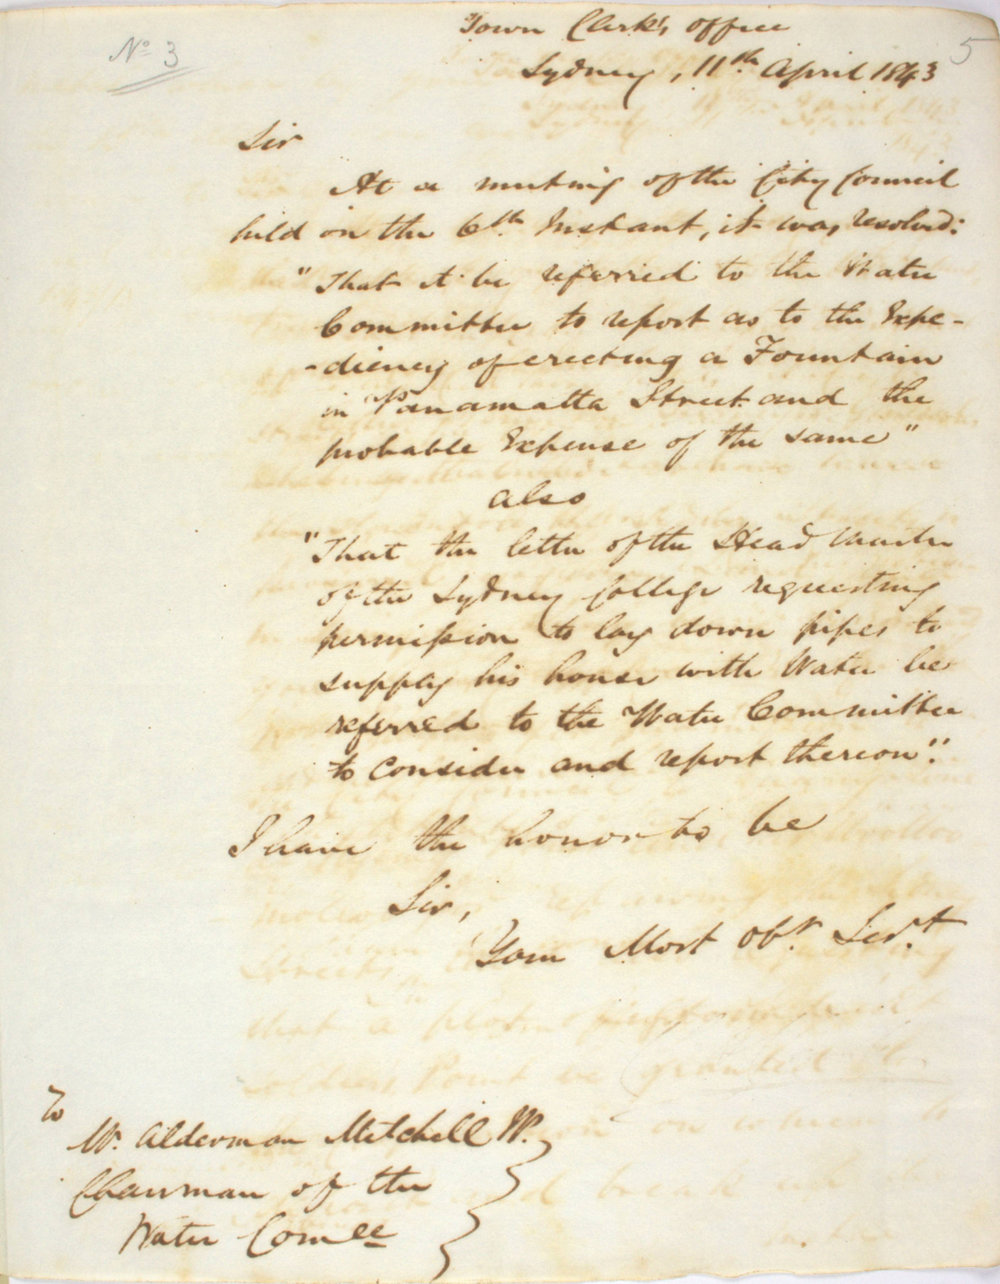 No 3
5
Town Clerk's office
Sydney, 11th April 1843
Sir
At a meeting of the City Council
held on the 6th Instant, it was resolved:
"That it be referred to the Water
Committee to report as to the Expe-
-diency of erecting a Fountain
in Parramatta Street and the
probable Expense of the same"
also
"That the letter of the Head Master
of the Sydney College requesting
permission to lay down pipes to
supply his house with Water be
referred to the Water Committee
to Consider and report thereon".
I have the honor to be
Sir,
Your Most obt. Servt.
To
Mr. Alderman Mitchell W.
Chairman of the
Water Comee